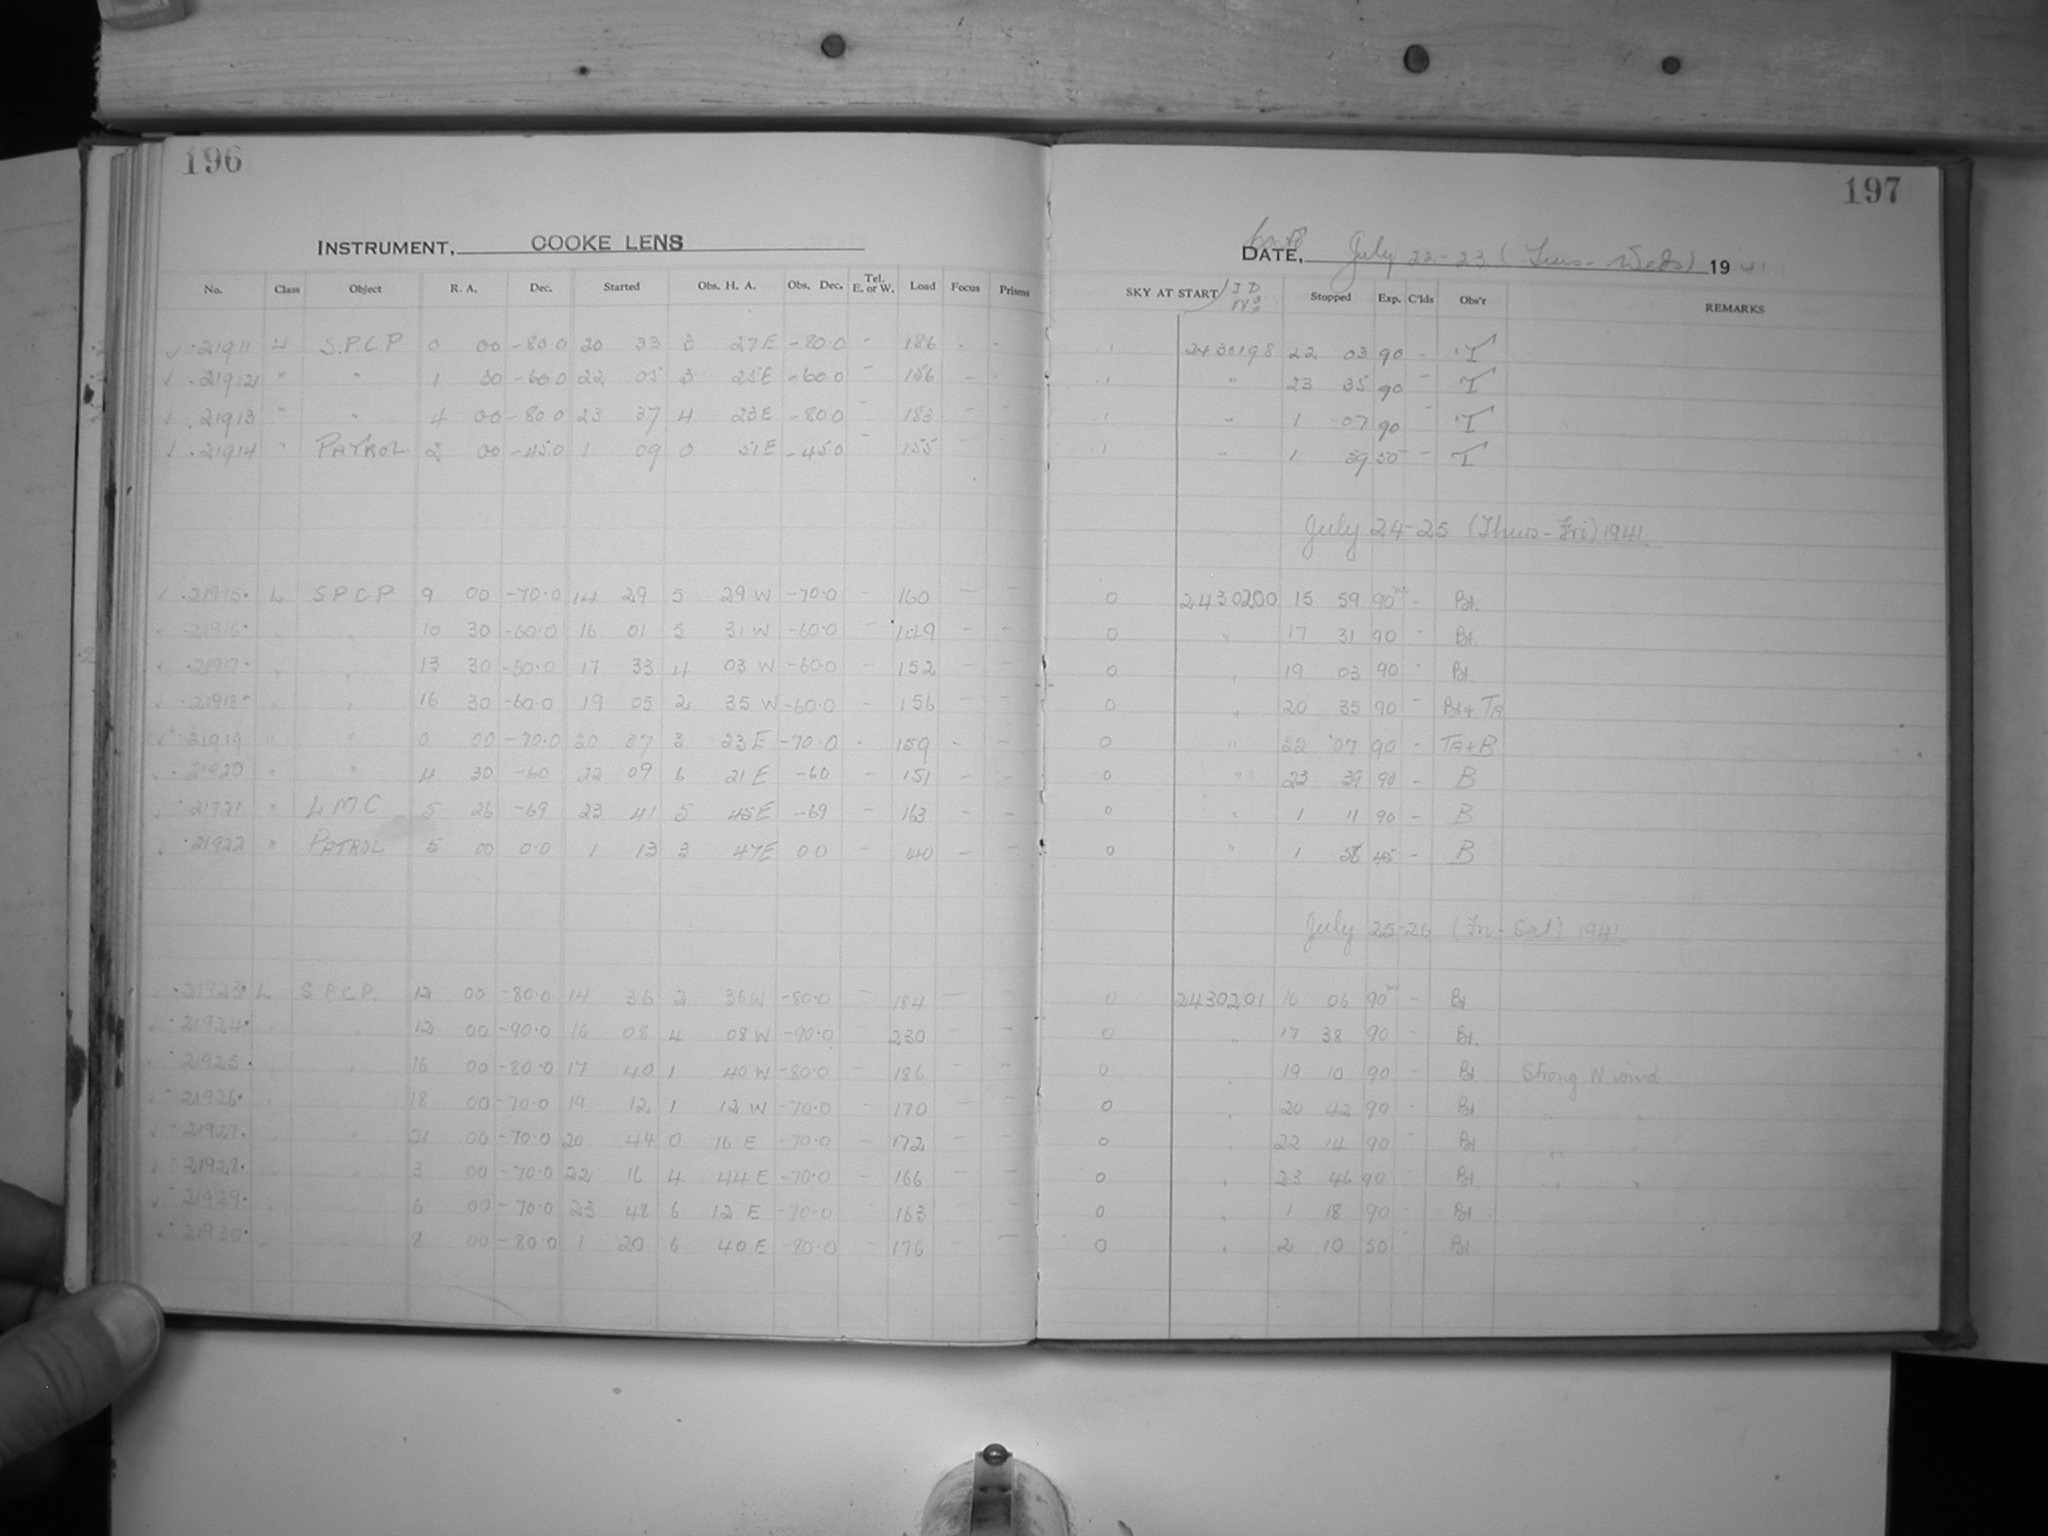 196
197
INSTRUMENT, COOKE LENS
Contd DATE, July 22-23 (Tues-Weds) 1941
No. Class Object R. A. Dec. Started Obs. H. A. Obs. Dec. Tel. E. or W. Load Focus Prisms SKY AT START J D No Stopped Exp. C'lds Obs'r REMARKS
✓ 21911 L S.P.C.P 0 00 -80.0 20 33 3 27E -80.0 - 186 - - 1 2430198 22 03 90 - T
✓ 21912 " " 1 30 -60.0 22 05 3 25E -60.0 - 156 - - 1 " 23 35 90 - T
✓ 21913 " " 4 00 -80.0 23 37 4 23E -80.0 - 183 - - 1 " 1 07 90 - T
✓ 21914 " PATROL 2 00 -45.0 1 09 0 51E -45.0 - 155 - - 1 " 1 59 50 - T
July 24-25 (Thurs-Fri) 1941.
✓ 21915 L S P C P 9 00 -70.0 14 29 5 29 W -70.0 - 160 - - 0 2430200 15 59 90 - Bt.
✓ 21916 " " 10 30 -60.0 16 01 5 31 W -60.0 - 149 - - 0 " 17 31 90 - Bt.
✓ 21917 " " 13 30 -60.0 17 33 4 03 W -60.0 - 152 - - 0 " 19 03 90 - Bt.
✓ 21918 " " 16 30 -60.0 19 05 2 35 W -60.0 - 156 - - 0 " 20 35 90 - Bt+Ta
✓ 21919 " " 0 00 -70.0 20 37 3 23 E -70.0 - 159 - - 0 " 22 07 90 - Ta+B
✓ 21920 " " 4 30 -60 22 09 6 21 E -60 - 151 - - 0 " 23 39 90 - B
✓ 21921 " L.M.C. 5 26 -69 23 41 5 45E -69 - 163 - - 0 " 1 11 90 - B
✓ 21922 " PATROL 5 00 0.0 1 13 3 47E 0.0 - 40 - - 0 " 1 58 45 - B
July 25-26 (Fri-Sat) 1941
✓ 21923 L S.P.C.P. 12 00 -80.0 14 36 2 36 W -80.0 - 184 - - 0 2430201 16 06 90 - Bt
✓ 21924 " " 12 00 -90.0 16 08 4 08 W -90.0 230 - 0 " 17 38 90 - Bt.
✓ 21925 " " 16 00 -80.0 17 40 1 40 W -80.0 - 186 - - 0 " 19 10 90 - Bt Strong N wind
✓ 21926 " " 18 00 -70.0 19 12 1 12 W -70.0 - 170 - - 0 " 20 42 90 - Bt " "
✓ 21927 " " 21 00 -70.0 20 44 0 16 E -70.0 - 172 - - 0 " 22 14 90 - Bt " "
✓ 21928 " " 3 00 -70.0 22 16 4 44 E -70.0 - 166 - - 0 " 23 46 90 - Bt " "
✓ 21929 " " 6 00 -70.0 23 48 6 12 E -70.0 - 163 - - 0 " 1 18 90 - Bt.
✓ 21930 " " 8 00 -80.0 1 20 6 40 E -80.0 - 176 - - 0 " 2 10 50 - Bt